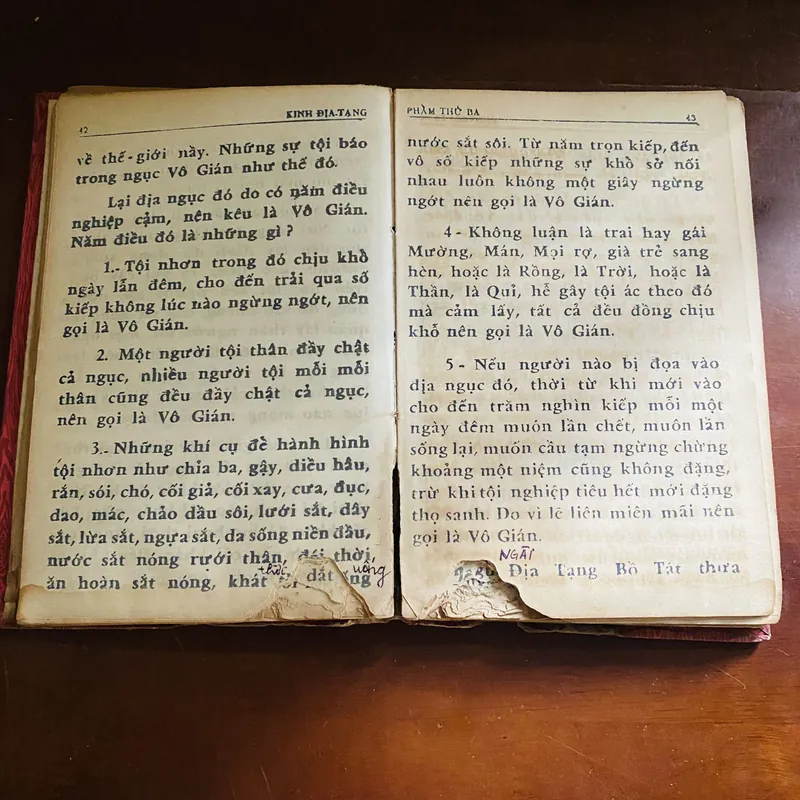 42
KINH ĐỊA-TẠNG
về thế-giới nầy. Những sự tội báo
trong ngục Vô Gián như thế đó.
Lại địa ngục đó do có năm điều
nghiệp cảm, nên kêu là Vô Gián.
Năm điều đó là những gì ?
1.- Tội nhơn trong đó chịu khổ
ngày lẫn đêm, cho đến trải qua số
kiếp không lúc nào ngừng ngớt, nên
gọi là Vô Gián.
2. Một người tội thân đầy chật
cả ngục, nhiều người tội mỗi mỗi
thân cũng đều đầy chật cả ngục,
nên gọi là Vô Gián.
3.- Những khí cụ để hành hình
tội nhơn như chỉa ba, gậy, diều hâu,
rắn, sói, chó, cối giả, cối xay, cưa, đục,
dao, mác, chảo dầu sôi, lưới sắt, dây
sắt, lừa sắt, ngựa sắt, da sống niền đầu,
nước sắt nóng rưới thân, đói thời
ăn hoàn sắt nóng, khát thời uống
PHẨM THỨ BA
43
nước sắt sôi. Từ năm trọn kiếp, đến
vô số kiếp những sự khổ sở nối
nhau luôn không một giây ngừng
ngớt nên gọi là Vô Gián.
4 - Không luận là trai hay gái
Mường, Mán, Mọi rợ, già trẻ sang
hèn, hoặc là Rồng, là Trời, hoặc là
Thần, là Quỉ, hễ gây tội ác theo đó
mà cảm lấy, tất cả đều đồng chịu
khổ nên gọi là Vô Gián.
5 - Nếu người nào bị đọa vào
địa ngục đó, thời từ khi mới vào
cho đến trăm nghìn kiếp mỗi một
ngày đêm muôn lần chết, muôn lần
sống lại, muốn cầu tạm ngừng chừng
khoảng một niệm cũng không đặng,
trừ khi tội nghiệp tiêu hết mới đặng
thọ sanh. Do vì lẽ liên miên mãi nên
gọi là Vô Gián.
NGÀI
Địa Tạng Bồ Tát thưa